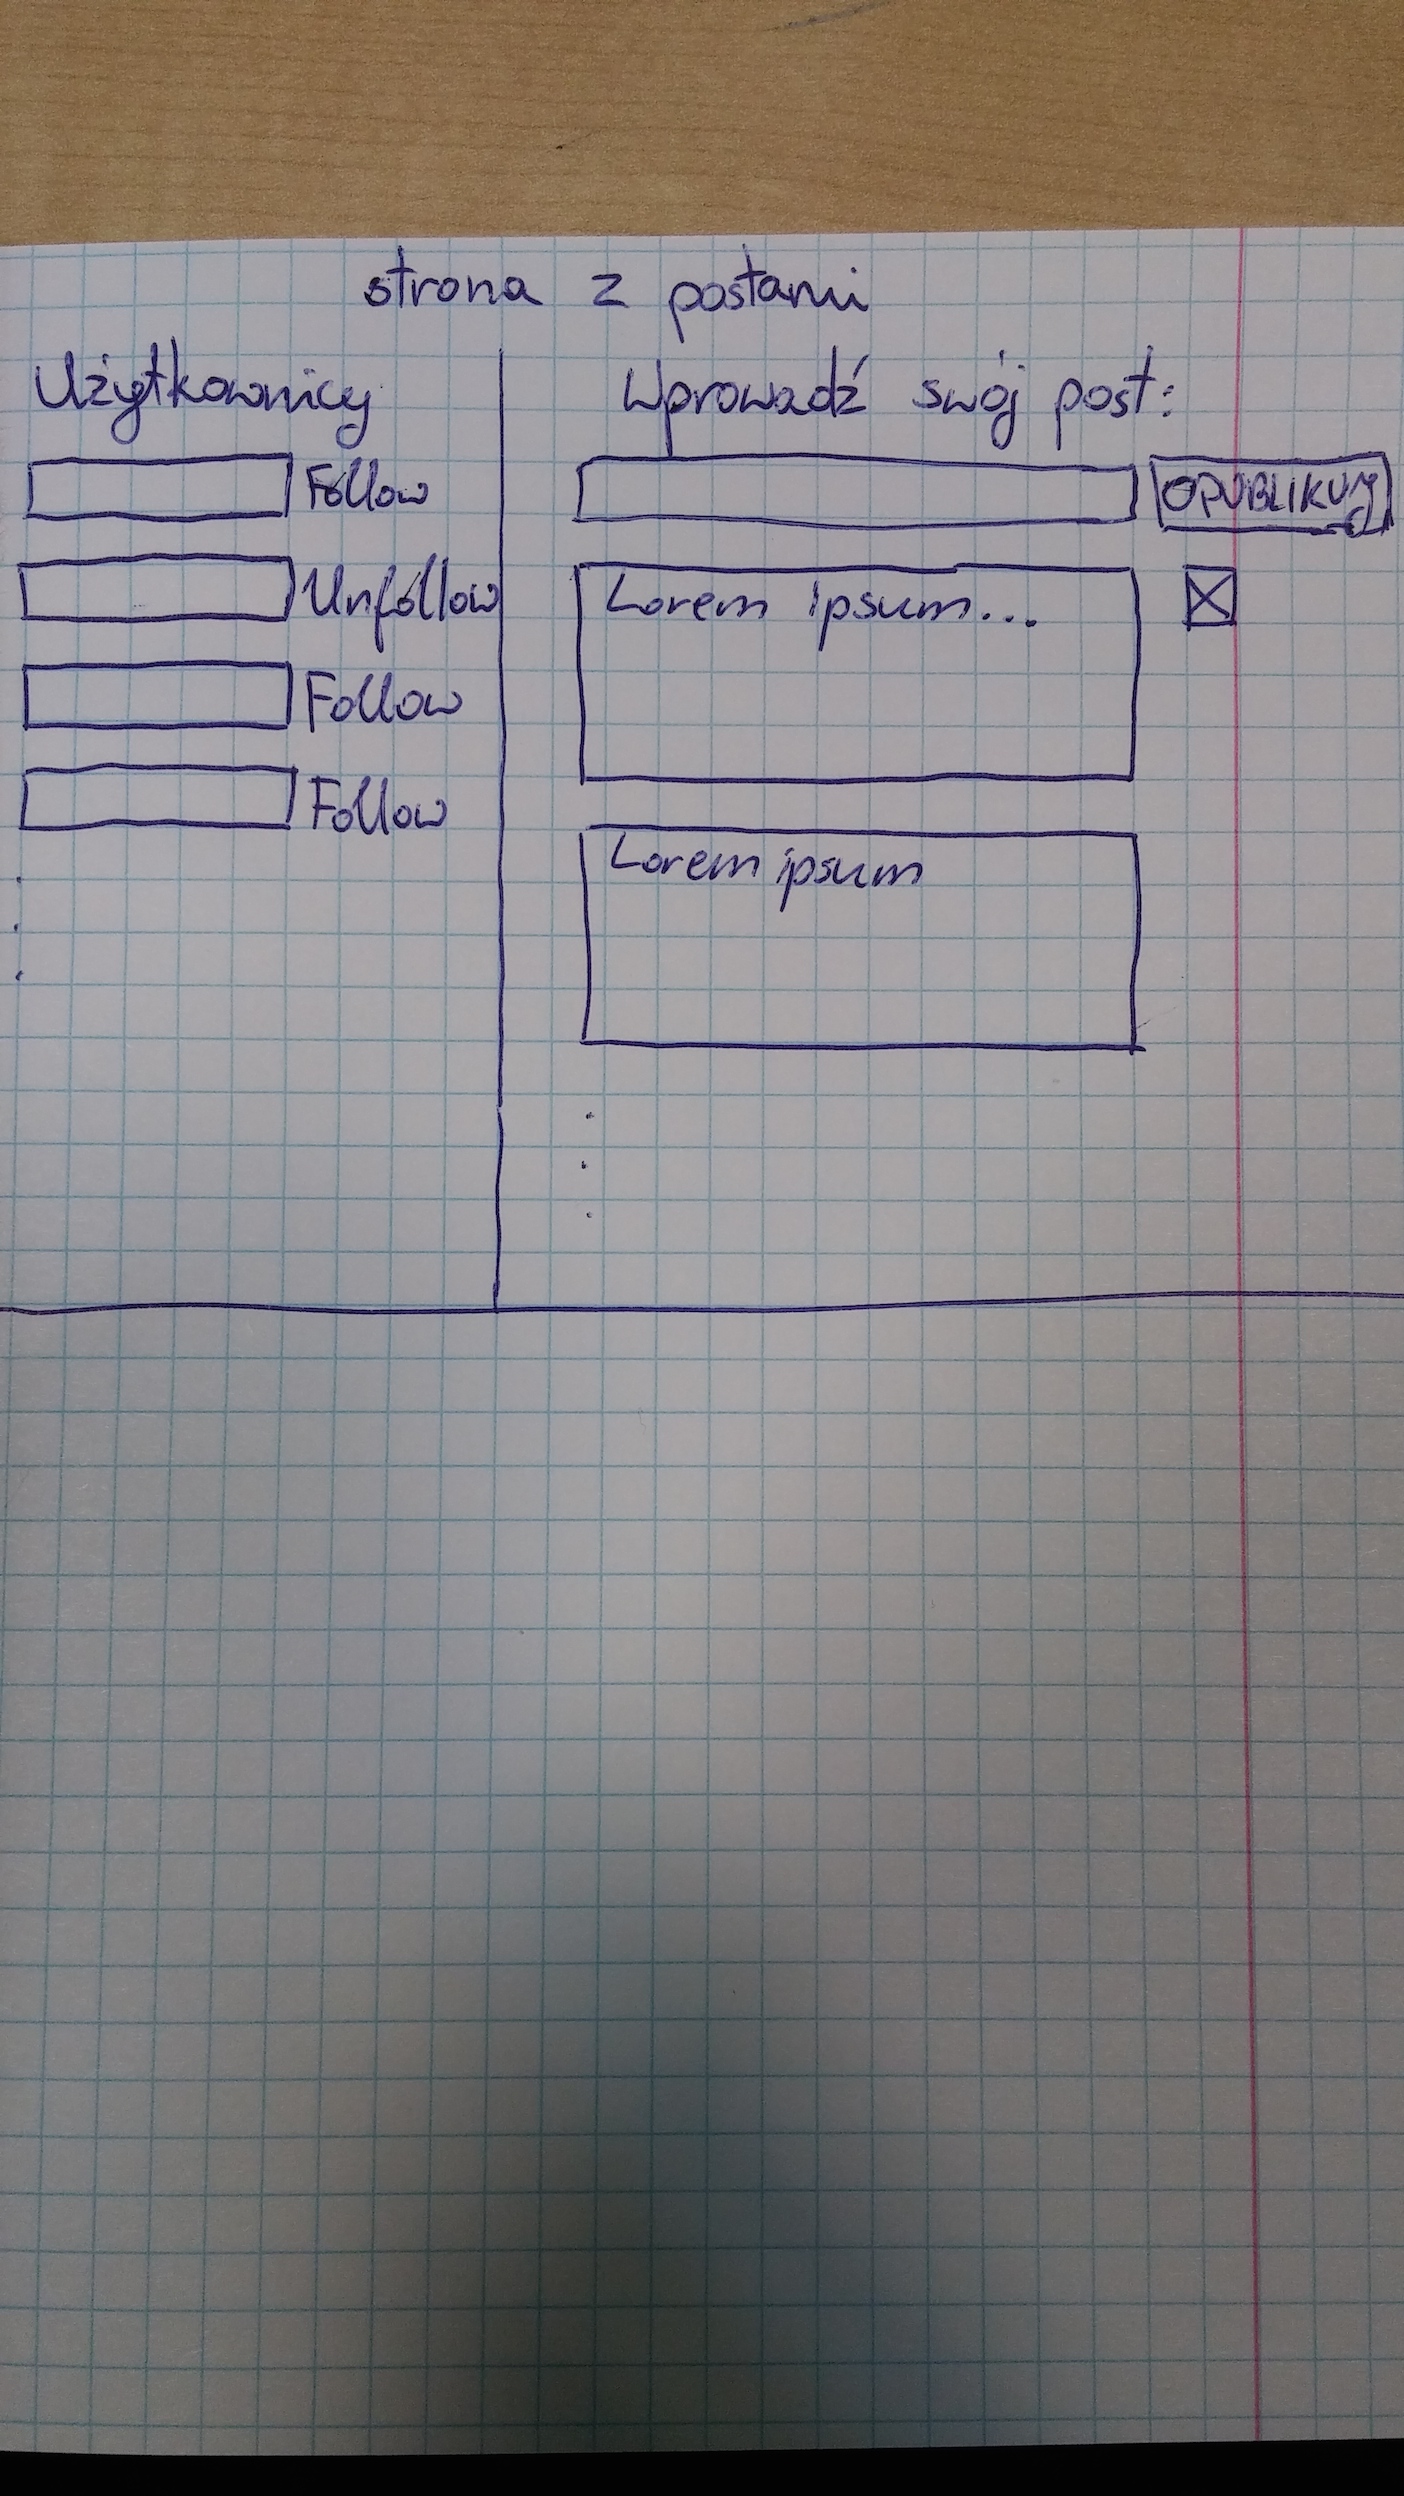 strona z postami
Użytkownicy
Follow
Unfollow
Follow
Follow
Wprowadź swój post:
OPUBLIKUJ
Lorem ipsum...
Lorem ipsum